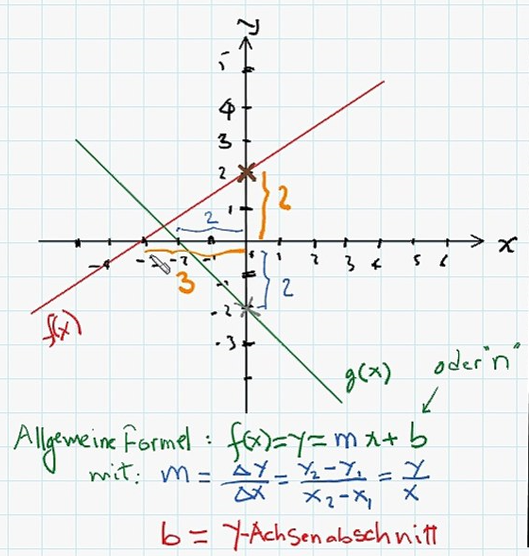 y
5
4
3
2
1
2
2
-4 -3 -2 -1 1 2 3 4 5 6 x
3
-1
2
-2
-3
f(x)
g(x)
oder "n"
Allgemeine Formel: f(x)=y=mx+b
mit: m = Δy/Δx = y₂-y₁/x₂-x₁ = y/x
b = y-Achsenabschnitt